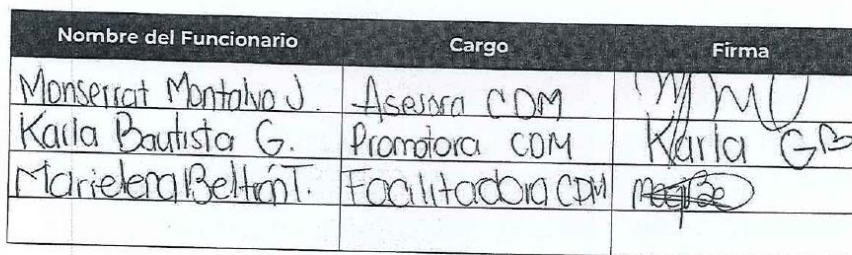 Nombre del Funcionario Cargo Firma
Monserrat Montalvo J. Asesora CDM
Karla Bautista G. Promotora CDM Karla GB
Marielena Beltrán T. Facilitadora CDM